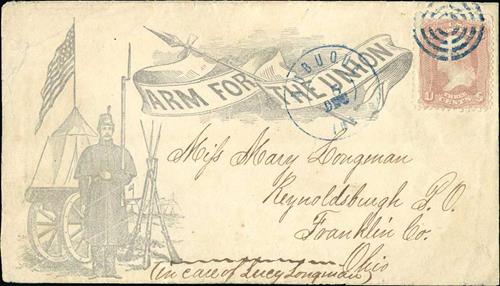 ARM FOR THE UNION
THREE CENTS
Miss Mary Longman
Reynoldsburgh P.O.
Franklin Co.
Ohio
(in care of Lucy Longman)